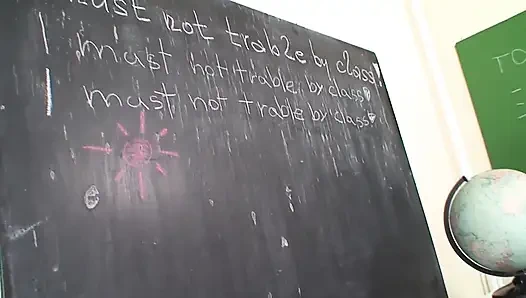 must not trable by class!
I must not trable by class!
I must not trable by class!
TO